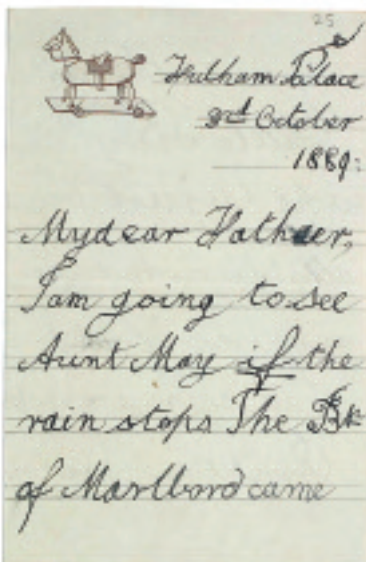 25
Fulham Palace
3rd October
1889:
My dear Father,
I am going to see
Aunt May if the
rain stops The Bk
of Marlbord came